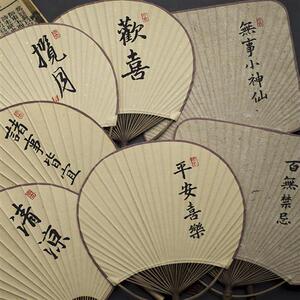 攬月
歡喜
無事小神仙
諸事皆宜
平安喜樂
百無禁忌
清涼